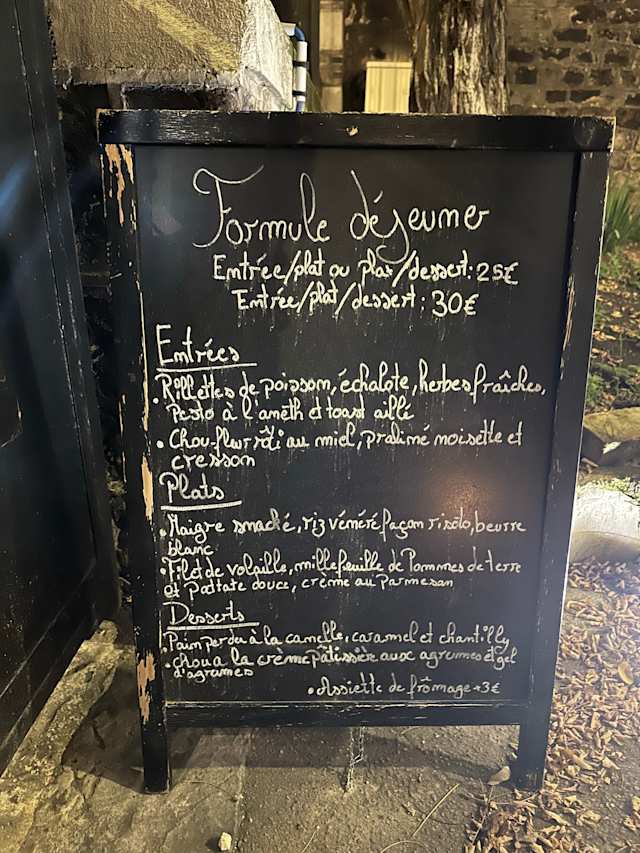 Formule déjeuner
Entrée/plat ou plat/dessert: 25€
Entrée/plat/dessert: 30€
Entrées
• Rillettes de poisson, échalote, herbes fraîches,
Pesto à l'aneth et toast aillé
• Chou-fleur rôti au miel, praliné noisette et
cresson
Plats
• Maigre snacké, riz vénéré façon risoto, beurre
blanc
• Filet de volaille, millefeuille de Pommes de terre
et Patate douce, crème au Parmesan
Desserts
• Pain perdu à la cannelle, caramel et chantilly
• Chou a la crème pâtissière aux agrumes et gel
d'agrumes
• Assiette de frômage +3€